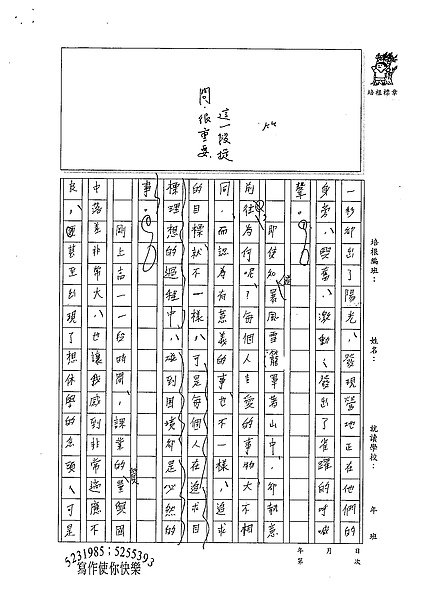 一秒卻出了陽光，發現營地正在他們的
身旁，興奮、激動，發出了雀躍的呼喊
聲。
即使知暴風雪籠罩著山中，卻執意
前往，為何呢？每個人生愛的事物大不相
同，而認為有意義的事也不一樣，追求
的目標就不一樣，可是每個人在追求目
標理想的過程中，碰到困境卻是必然的
事。
剛上高一一段時間，課業的繁與國
中落差非常大，也讓我感到非常適應不
良，甚至出現了想休學的念頭，可是
這一段提
問，很重要
培根標章
培根編班：
姓名：
就讀學校：
年 班
年 月 日
第 次
5231985；5255393
寫作使你快樂